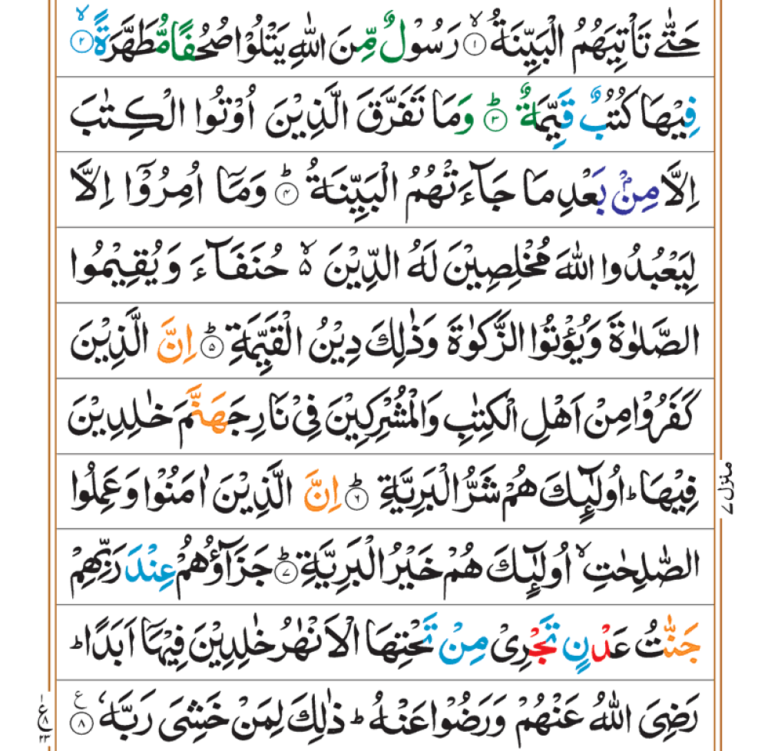 حَتّٰى تَاْتِيَهُمُ الْبَيِّنَةُ ۙ﴿۱﴾ رَسُوْلٌ مِّنَ اللّٰهِ يَتْلُوْا صُحُفًا مُّطَهَّرَةً ۙ﴿۲﴾
فِيْهَا كُتُبٌ قَيِّمَةٌ ؕ﴿۳﴾ وَمَا تَفَرَّقَ الَّذِيْنَ اُوْتُوا الْكِتٰبَ
اِلَّا مِنْۢ بَعْدِ مَا جَآءَتْهُمُ الْبَيِّنَةُ ؕ﴿۴﴾ وَمَاۤ اُمِرُوْۤا اِلَّا
لِيَعْبُدُوا اللّٰهَ مُخْلِصِيْنَ لَهُ الدِّيْنَ ۙ۬ حُنَفَآءَ وَيُقِيْمُوا
الصَّلٰوةَ وَيُؤْتُوا الزَّكٰوةَ وَذٰلِكَ دِيْنُ الْقَيِّمَةِ ؕ﴿۵﴾ اِنَّ الَّذِيْنَ
كَفَرُوْا مِنْ اَهْلِ الْكِتٰبِ وَالْمُشْرِكِيْنَ فِيْ نَارِ جَهَنَّمَ خٰلِدِيْنَ
فِيْهَا ؕ اُولٰٓئِكَ هُمْ شَرُّ الْبَرِيَّةِ ؕ﴿۶﴾ اِنَّ الَّذِيْنَ اٰمَنُوْا وَعَمِلُوا
الصّٰلِحٰتِ ۙ اُولٰٓئِكَ هُمْ خَيْرُ الْبَرِيَّةِ ؕ﴿۷﴾ جَزَآؤُهُمْ عِنْدَ رَبِّهِمْ
جَنّٰتُ عَدْنٍ تَجْرِيْ مِنْ تَحْتِهَا الْاَنْهٰرُ خٰلِدِيْنَ فِيْهَاۤ اَبَدًا ؕ
رَضِيَ اللّٰهُ عَنْهُمْ وَرَضُوْا عَنْهُ ؕ ذٰلِكَ لِمَنْ خَشِيَ رَبَّهٗ ﴿۸﴾ ع
منزل ۷
ع ۸ ۲۳